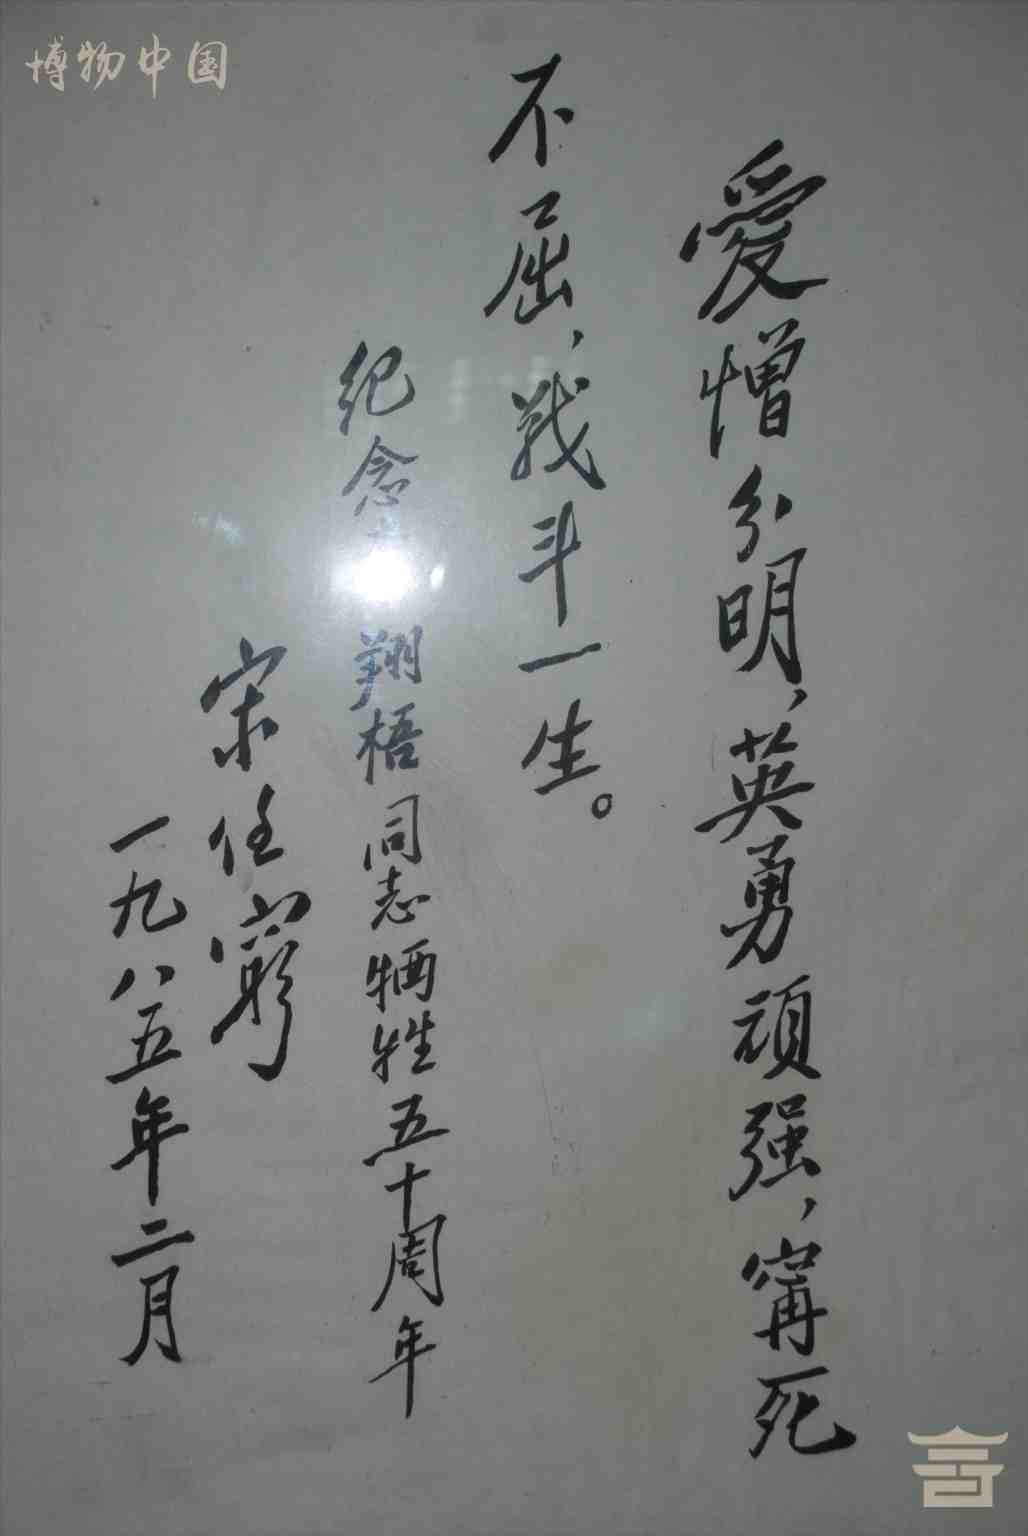 博物中国
愛憎分明，英勇頑强，寗死
不屈，战斗一生。
纪念 翔梧同志牺牲五十周年
宋任穷
一九八五年二月